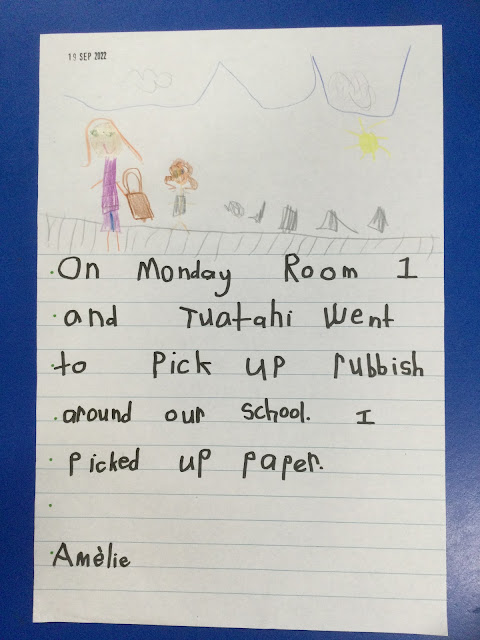 19 SEP 2022
On Monday Room 1
and Tuatahi went
to pick up rubbish
around our school. I
picked up paper.
Amèlie